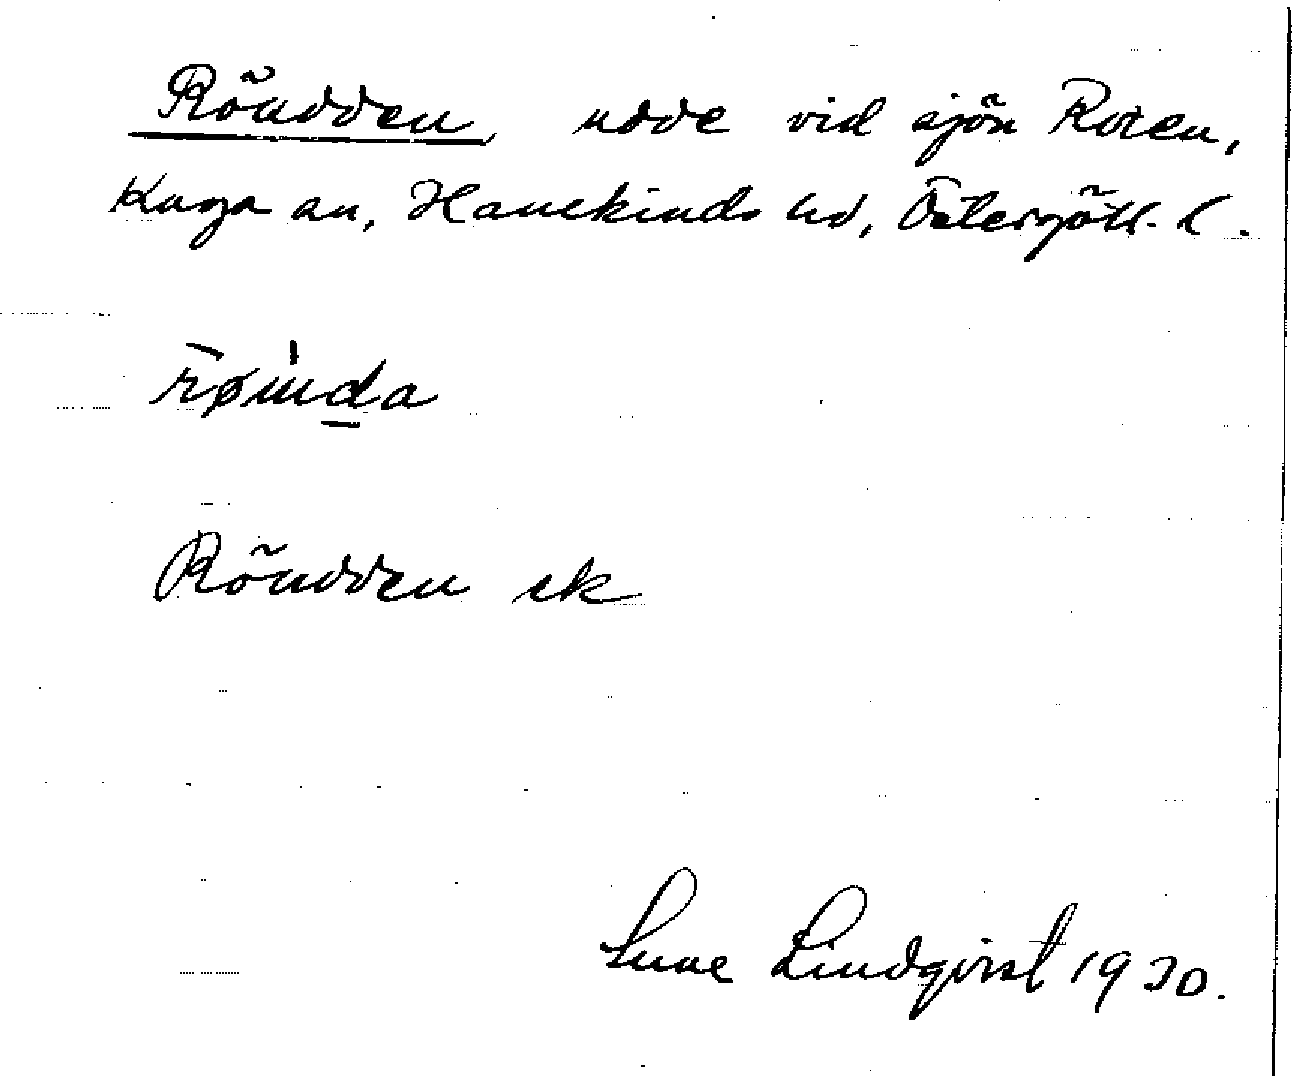 Röudden, udde vid sjön Roxen,
Kaga sn, Hanekinds hd, Östergötl. l.
Röudden ek
Sune Lindqvist 1930.